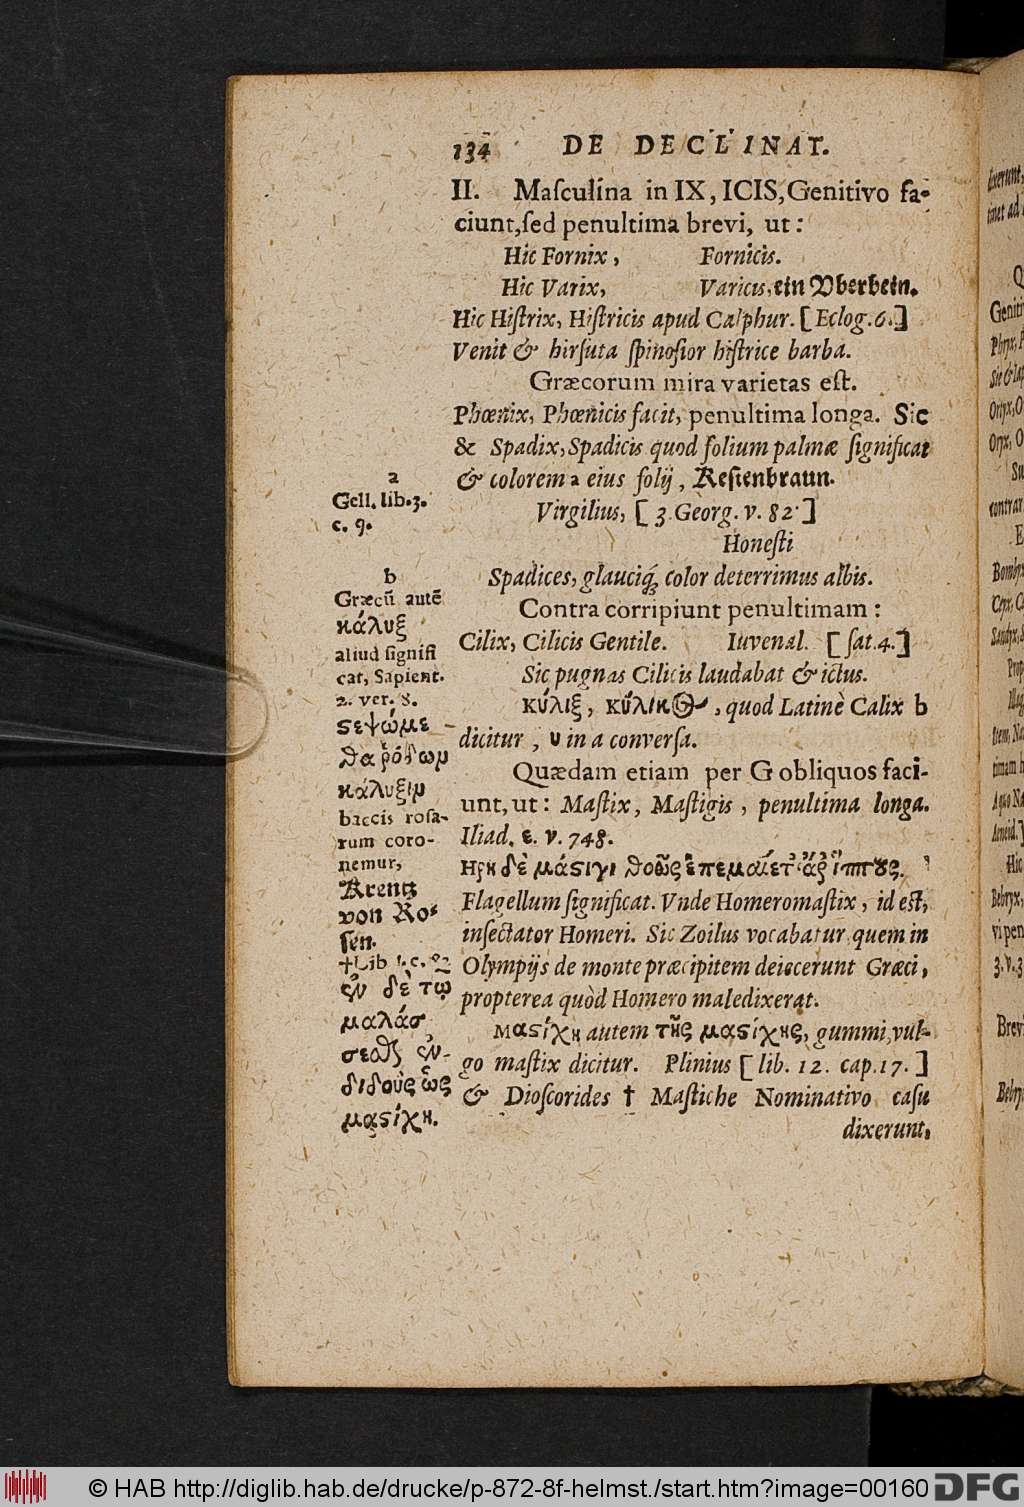 134 DE DECLINAT.
II. Maſculina in IX, ICIS, Genitivo fa-
ciunt, ſed penultima brevi, ut:
Hic Fornix, Fornicis.
Hic Varix, Varicis, ein Vberbein.
Hic Hiſtrix, Hiſtricis apud Calphur. [Eclog. 6.]
Venit & hirſuta ſpinoſior hiſtrice barba.
Græcorum mira varietas eſt.
Phœnix, Phœnicis facit, penultima longa. Sic
& Spadix, Spadicis quod folium palmæ ſignificat
& colorem a eius folij, Keſtenbraun.
Virgilius, [3. Georg. v. 82.]
Honeſti
Spadices, glauciq́;, color deterrimus albis.
Contra corripiunt penultimam:
Cilix, Cilicis Gentile. Iuvenal. [ſat. 4.]
Sic pugnas Cilicis laudabat & ictus.
κύλιξ, κύλικος, quod Latinè Calix b
dicitur, υ in a converſa.
Quædam etiam per G obliquos faci-
unt, ut: Maſtix, Maſtigis, penultima longa.
Iliad. ε. v. 748.
Ηρη δὲ μάϛιγι θοῶς ἐπεμαίετ᾽ ἄρ᾽ ἵππους.
Flagellum ſignificat. Vnde Homeromaſtix, id eſt,
inſectator Homeri. Sic Zoilus vocabatur quem in
Olympijs de monte præcipitem deiecerunt Græci,
propterea quòd Homero maledixerat.
Μαϛίχη autem τῆς μαϛίχης, gummi, vul-
go maſtix dicitur. Plinius [lib. 12. cap. 17.]
& Dioſcorides † Maſtiche Nominativo caſu
dixerunt,
a
Gell. lib. 3.
c. 9.
b
Græcũ autẽ
κάλυξ
aliud ſignifi
cat, Sapient.
2. ver. 8.
ϛεψώμε-
θα ῥόδων
κάλυξιν
baccis roſa-
rum coro-
nemur,
Krentz
von Ro-
ſen.
† Lib 1. c. 92
ἐν δὲ τῷ
μαλάσ
σεσθαι ἐν-
διδοὺς ὡς
μαϛίχη.
© HAB http://diglib.hab.de/drucke/p-872-8f-helmst./start.htm?image=00160 DFG